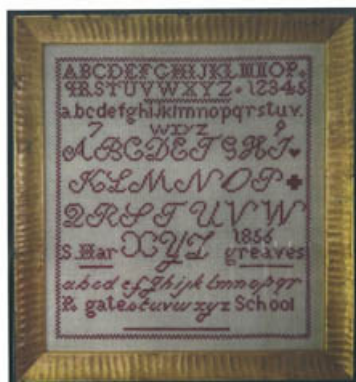 ABCDEFGHIJKLMNOP
QRSTUVWXYZ 12345
abcdefghijklmnopqrstuv.
7 wxyz 9
ABCDEFGHI
KLMNOP
QRSTUVW
S. Har XYZ 1856 greaves
abcdefghijklmnopqr
R gate stuvwxyz School